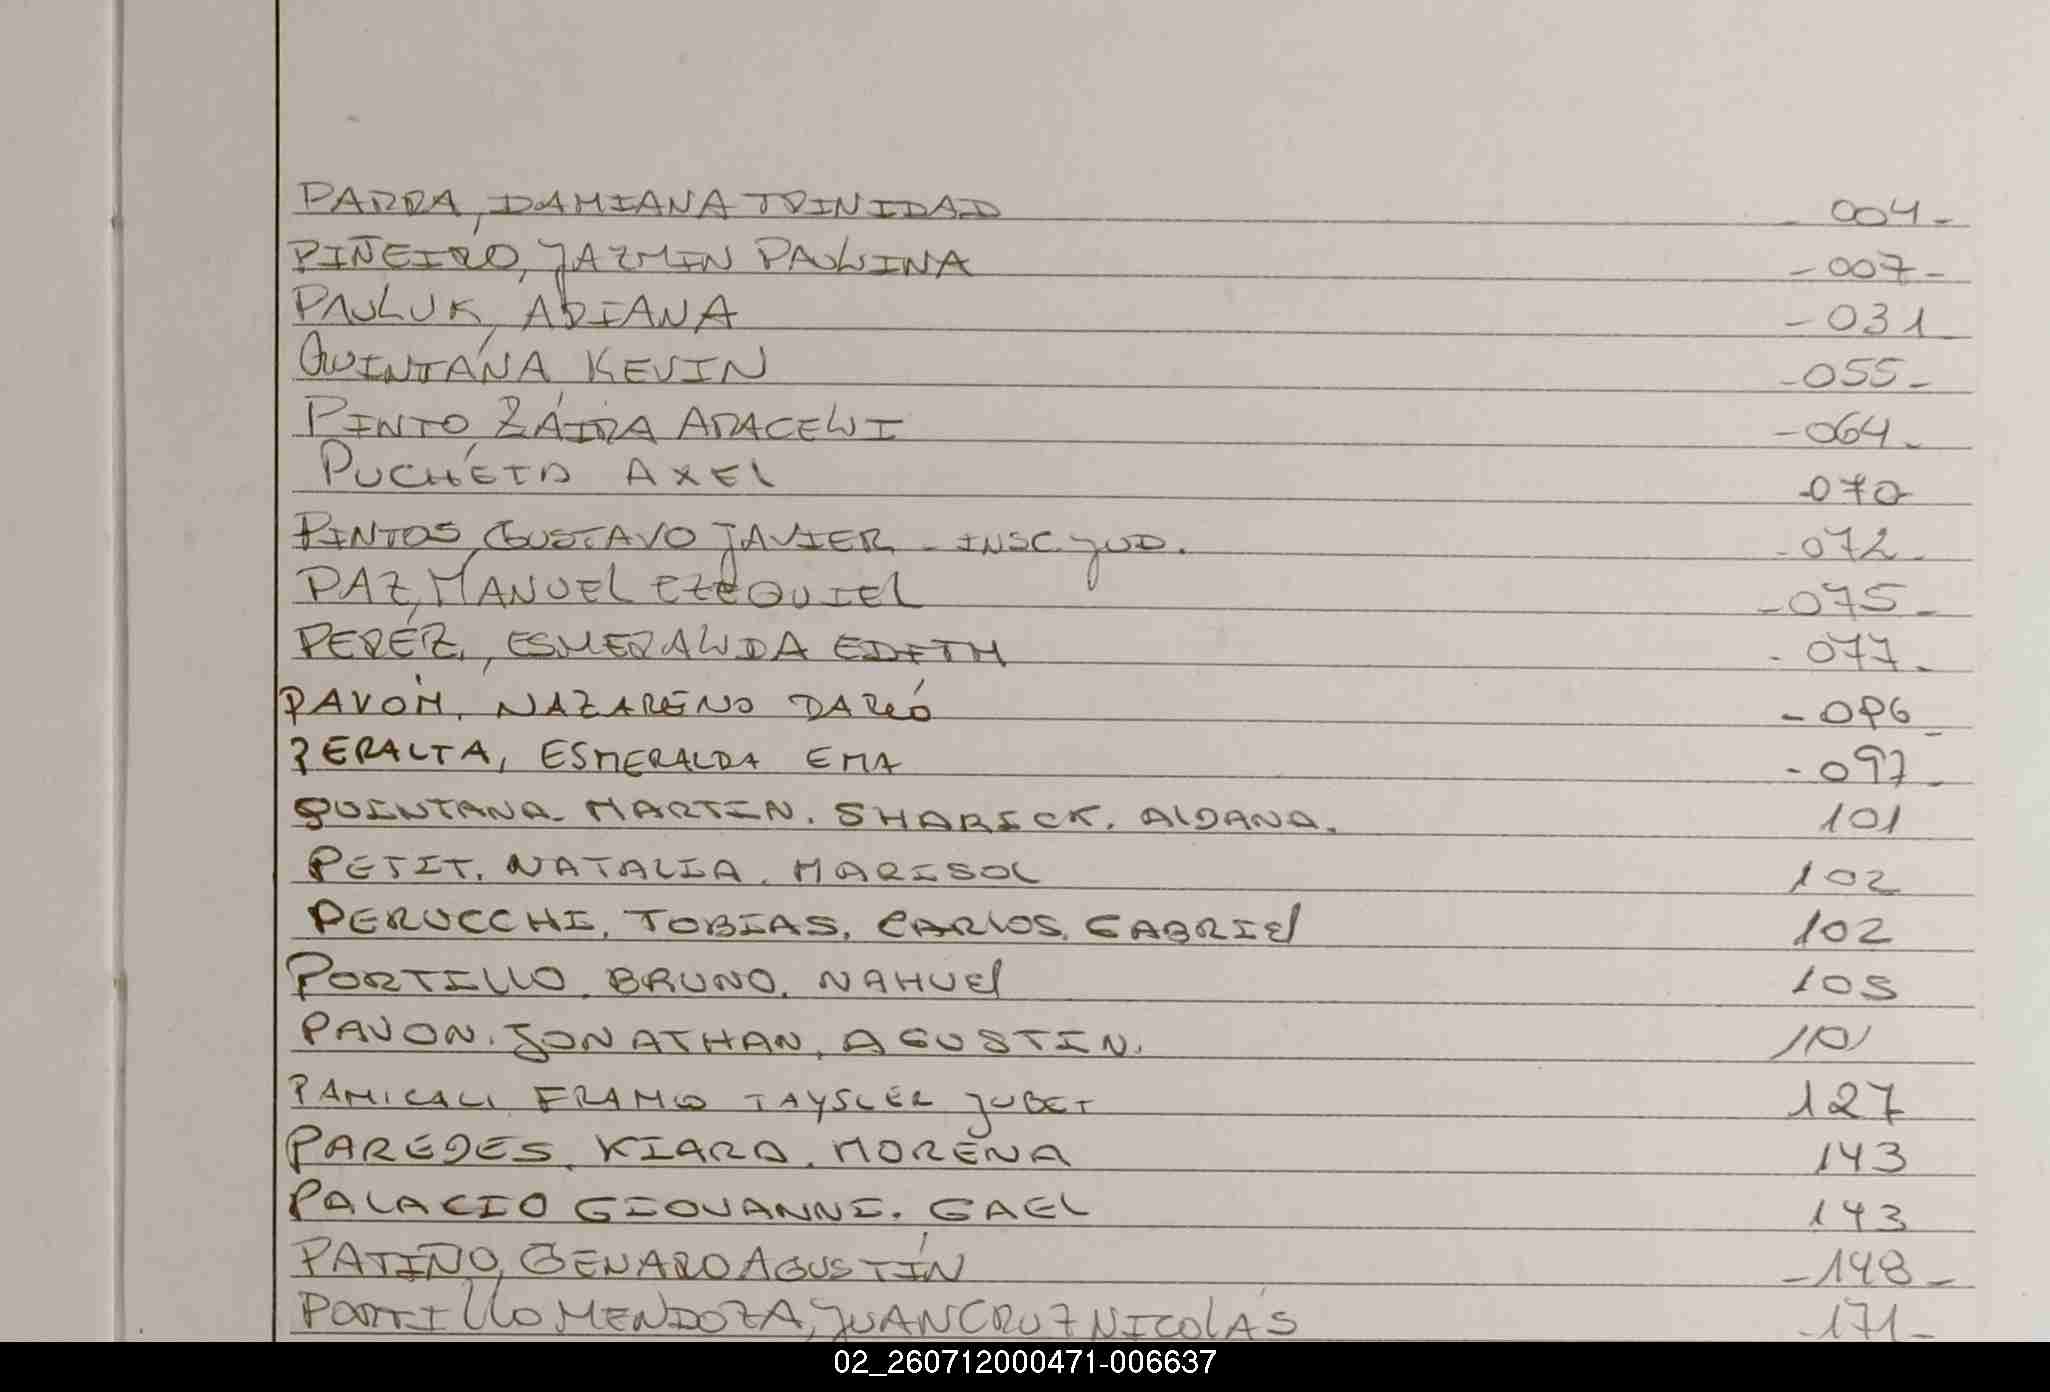 PARRA, DAMIANA TRINIDAD - 004 -
PIÑEIRO, JAZMIN PAULINA - 007 -
PAULUK, ADIANA - 031
QUINTANA, KEVIN - 055 -
PINTO, ZÁIRA ARACELI - 064 -
PUCHÉTA AXEL - 070 -
PINTOS, GUSTAVO JAVIER - INSC. JUD. - 072 -
PAZ, MANUEL EZEQUIEL - 075 -
PERÉZ, ESMERALDA EDITH - 077 -
PAVÓN, NAZARENO DARÍO - 096 -
PERALTA, ESMERALDA EMA - 097 -
QUINTANA. MARTIN. SHARICK. ALDANA. 101
PETIT. NATALIA. MARISOL 102
PERUCCHI, TOBIAS, CARLOS, GABRIEL 102
PORTILLO. BRUNO. NAHUEL 105
PAVON. JONATHAN, AGUSTIN. 101
PAMICALI TAYSLER JUBET 127
PAREDES. KIARA. MORENA 143
PALACIO GIOVANNI. GAEL 143
PATIÑO, GENARO AGUSTÍN - 148 -
PORTILLO MENDOZA, JUAN CRUZ NICOLÁS - 171 -
02_260712000471-006637